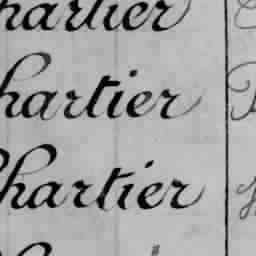 Chartier
Chartier
Chartier